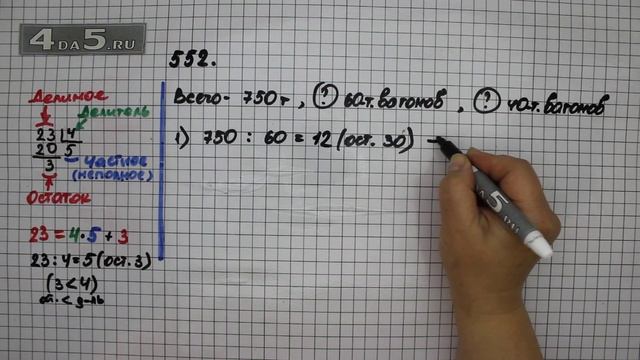 4DA5.RU
552.
Всего - 750 т, ? 60 т. вагонов, ? 40 т. вагонов
1) 750 : 60 = 12 (ост. 30) -
Делимое
Делитель
23 4
20 5
3 частное
(неполное)
Остаток
23 = 4 · 5 + 3
23 : 4 = 5 (ост. 3)
(3 < 4)
ост. < д-ль
4DA5.RU